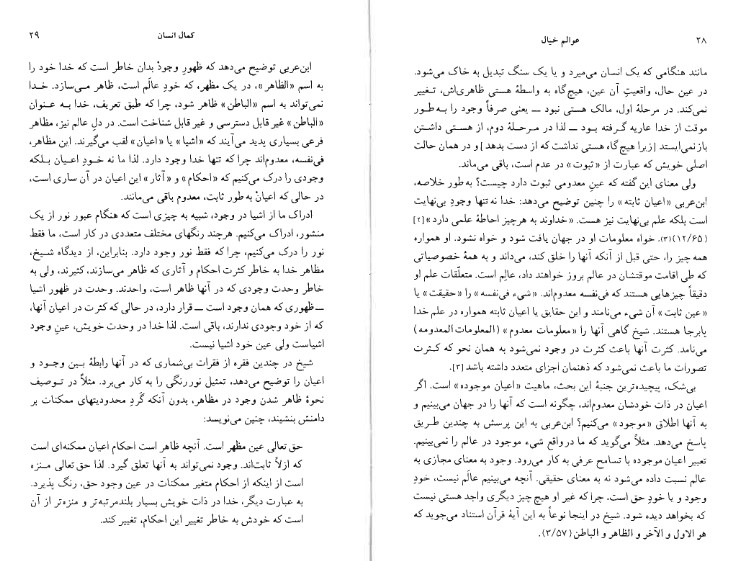 ۲۸
عوالم خیال
مانند هنگامی که یک انسان می‌میرد و یا یک سنگ تبدیل به خاک می‌شود.
در عین حال، واقعیتِ آن عین، هیچ‌گاه به واسطهٔ هستی ظاهری‌اش، تغییر
نمی‌کند. در مرحلهٔ اول، مالک هستی نبود ـــ یعنی صرفاً وجود را به‌طور
موقت از خدا عاریه گرفته بود ـــ لذا در مرحلهٔ دوم، از هستی داشتن
بازنمی‌ایستد [زیرا هیچ‌گاه هستی نداشت که از دست بدهد] و در همان حالت
اصلی خویش که عبارت از «ثبوت» در عدم است، باقی می‌ماند.
ولی معنای این گفته که عینِ معدومی ثبوت دارد چیست؟ به‌طور خلاصه،
ابن‌عربی «اعیان ثابته» را چنین توضیح می‌دهد: خدا نه تنها وجودِ بی‌نهایت
است بلکه علم بی‌نهایت نیز هست. «خداوند به هرچیز احاطهٔ علمی دارد» [۲]
(۱۲/۶۵)(۳). خواه معلومات او در جهان یافت شود و خواه نشود. او همواره
همه چیز را، حتی قبل از آنکه آنها را خلق کند، می‌داند و به همهٔ خصوصیاتی
که طی اقامت موقتشان در عالم بروز خواهند داد، عالِم است. متعلّقات علم او
دقیقاً چیزهایی هستند که فی‌نفسه معدوم‌اند. «شیء فی‌نفسه» را «حقیقت» یا
«عین ثابت» آن شیء می‌نامند و این حقایق یا اعیان ثابته همواره در علم خدا
پابرجا هستند. شیخ گاهی آنها را «معلومات معدوم» (المعلومات المعدومه)
می‌نامد. کثرت آنها باعث کثرت در وجود نمی‌شود به همان نحو که کثرت
تصورات ما باعث نمی‌شود که ذهنمان اجزای متعدد داشته باشد [۳].
بی‌شک، پیچیده‌ترین جنبهٔ این بحث، ماهیت «اعیان موجوده» است. اگر
اعیان در ذات خودشان معدوم‌اند، چگونه است که آنها را در جهان می‌بینیم و
به آنها اطلاق «موجود» می‌کنیم؟ ابن‌عربی به این پرسش به چندین طریق
پاسخ می‌دهد. مثلاً می‌گوید که ما درواقع شیء موجود در عالم را نمی‌بینیم.
تعبیر اعیان موجوده با تسامح عرفی به کار می‌رود. وجود به معنای مجازی به
عالم نسبت داده می‌شود نه به معنای حقیقی. آنچه می‌بینیم عالَم نیست، خودِ
وجود و یا خودِ حق است. چرا که غیر او هیچ چیز دیگری واجد هستی نیست
که بخواهد دیده شود. شیخ در اینجا نوعاً به این آیهٔ قرآن استناد می‌جوید که
هو الاول و الآخر و الظاهر و الباطن (۳/۵۷).
کمال انسان
۲۹
ابن‌عربی توضیح می‌دهد که ظهورِ وجودْ بدان خاطر است که خدا خود را
به اسم «الظاهر»، در یک مظهر، که خودِ عالَم است، ظاهر می‌سازد. خدا
نمی‌تواند به اسم «الباطن» ظاهر شود، چرا که طبق تعریف، خدا به عنوان
«الباطن» غیر قابل دسترسی و غیر قابل شناخت است. در دلِ عالم نیز، مظاهر
فرعی بسیاری پدید می‌آیند که «اشیا» یا «اعیان» لقب می‌گیرند. این مظاهر
فی‌نفسه، معدوم‌اند چرا که تنها خدا وجود دارد. لذا ما نه خودِ اعیان بلکه
وجودی را درک می‌کنیم که «احکام» و «آثار» این اعیان در آن ساری است،
در حالی که اعیانْ به طور ثابت، معدوم باقی می‌مانند.
ادراک ما از اشیا در وجود، شبیه به چیزی است که هنگام عبور نور از یک
منشور، ادراک می‌کنیم. هرچند رنگهای مختلف متعددی در کار است، ما فقط
نور را درک می‌کنیم، چرا که فقط نور وجود دارد. بنابراین، از دیدگاه شیخ،
مظاهر خدا به خاطر کثرت احکام و آثاری که ظاهر می‌سازند، کثیرند، ولی به
خاطر وحدت وجودی که در آنها ظاهر است، واحدند. وحدت در ظهور اشیا
ـــ ظهوری که همان وجود است ـــ قرار دارد، در حالی که کثرت در اعیان آنها،
که از خود وجودی ندارند، باقی است. لذا خدا در وحدت خویش، عینِ وجودِ
اشیاست ولی عین خود اشیا نیست.
شیخ در چندین فقره از فقرات بی‌شماری که در آنها رابطهٔ بین وجود و
اعیان را توضیح می‌دهد، تمثیل نوررنگی را به کار می‌برد. مثلاً در توصیف
نحوهٔ ظاهر شدن وجود در مظاهر، بدون آنکه گَردِ محدودیتهای ممکنات بر
دامنش بنشیند، چنین می‌نویسد:
حق تعالی عین مظهر است. آنچه ظاهر است احکام اعیان ممکنه‌ای است
که ازلاً ثابت‌اند. وجود نمی‌تواند به آنها تعلق گیرد. لذا حق تعالی منزه
است از اینکه از احکام متغیر ممکنات در عین وجود حق، رنگ پذیرد.
به عبارت دیگر، خدا در ذات خویش بسیار بلندمرتبه‌تر و منزه‌تر از آن
است که خودش به خاطر تغییر این احکام، تغییر کند.